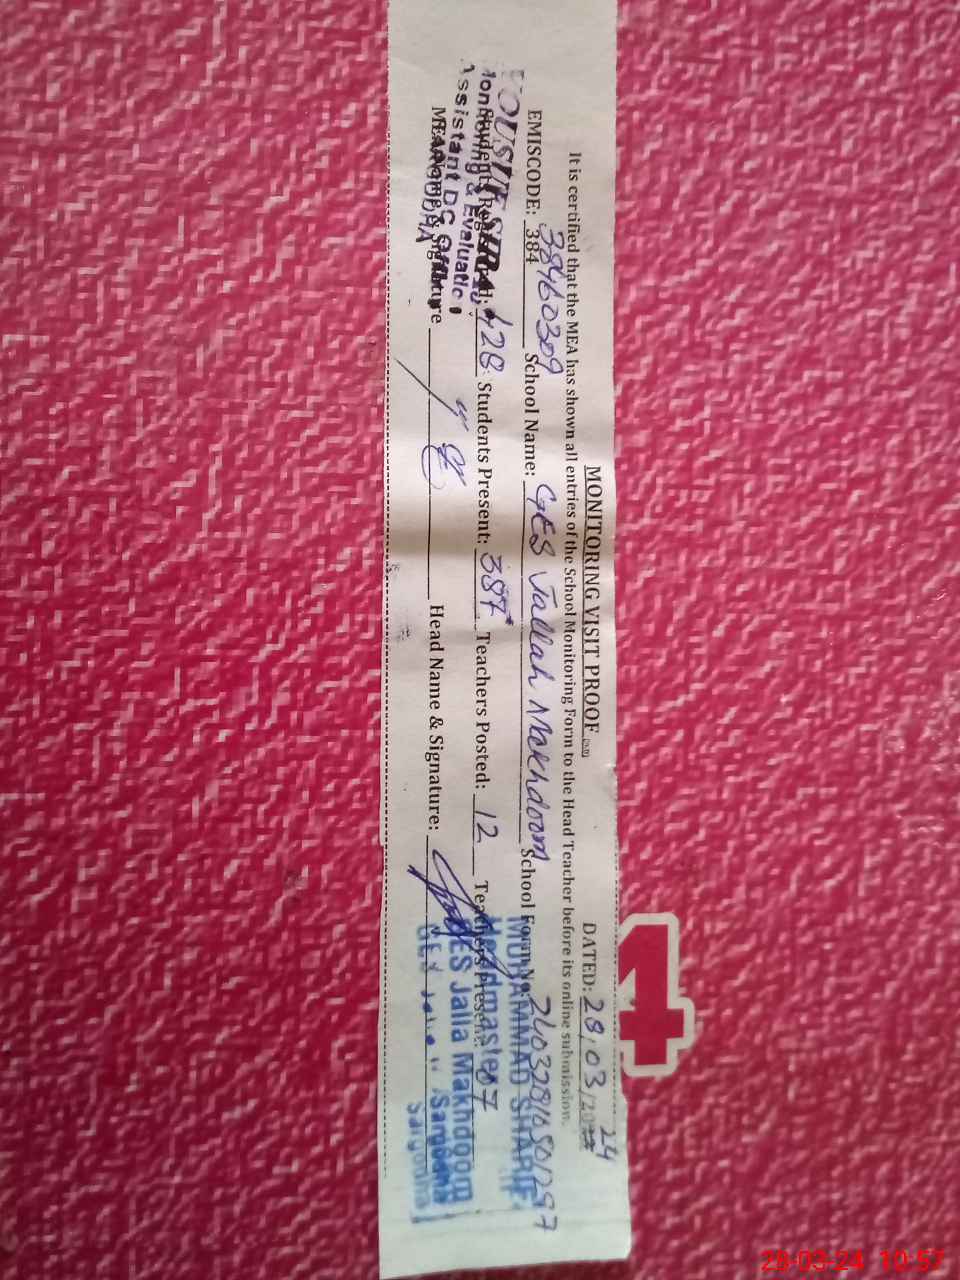 MONITORING VISIT PROOF
DATED: 28/03/2024
It is certified that the MEA has shown all entries of the School Monitoring Form to the Head Teacher before its online submission.
EMISCODE: 384 38460309 School Name: GES Jallah Makhdoom School Form No: 24032816801297
Students Registered: 428 Students Present: 387 Teachers Posted: 12 Teachers Present: 07
MEA Name & Signature Head Name & Signature:
Monitoring & Evaluation
Assistant DC Office
SARGODHA
MUHAMMAD SHARIF
Headmaster
GES Jalla Makhdoom
Sargodha
4
28-03-24 10:57